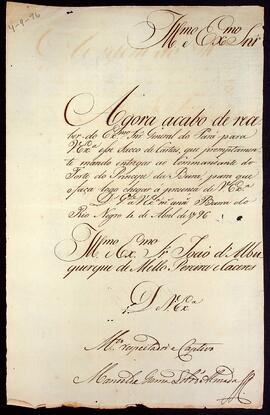 4-9-96
Illmo e Exmo Snr
Agora acabo de rece
ber do Exmo Snr General do Pará para
V Exa esse Sacco de Cartas, que promptamen
te mando entregar ao Commandante do
Forte do Principe da Beira, para que
o faça logo chegar á presença de V Exa
Ds Gde a V Exa ms anns Barra do
Rio Negro 4 de Abril de 1796
Illmo e Exmo Snr João d'Albu
querque de Mello Pereira e Caceres
D V Exa
Mto respeitador e Captivo
Manoel da Gama Lobo d'Almada